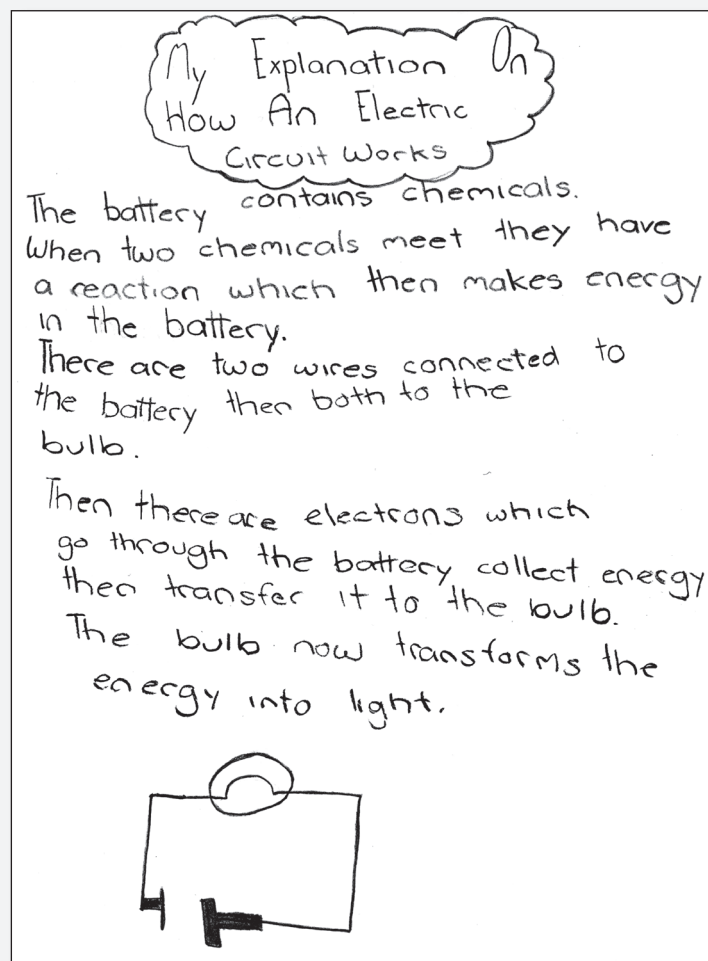 My Explanation On
How An Electric
Circuit Works
The battery contains chemicals.
When two chemicals meet they have
a reaction which then makes energy
in the battery.
There are two wires connected to
the battery then both to the
bulb.
Then there are electrons which
go through the battery collect energy
then transfer it to the bulb.
The bulb now transforms the
energy into light.